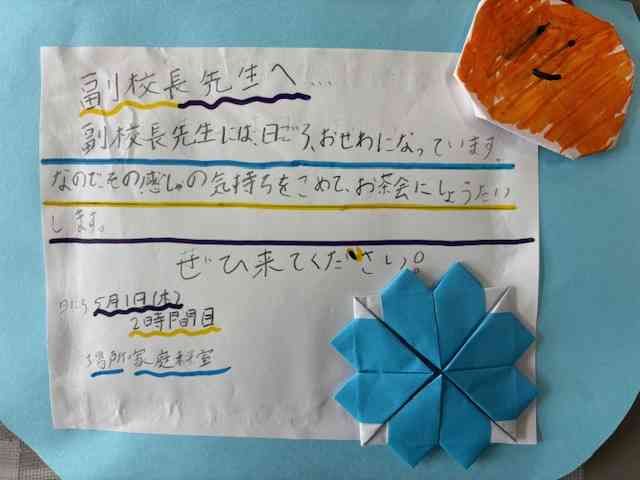 副校長先生へ…
副校長先生には、日ごろ、おせわになっています。
なのでその感しゃの気持ちをこめて、お茶会にしょうたい
します。
ぜひ来てください。
日にち 5月1日(木)
2時間目
場所 家庭科室